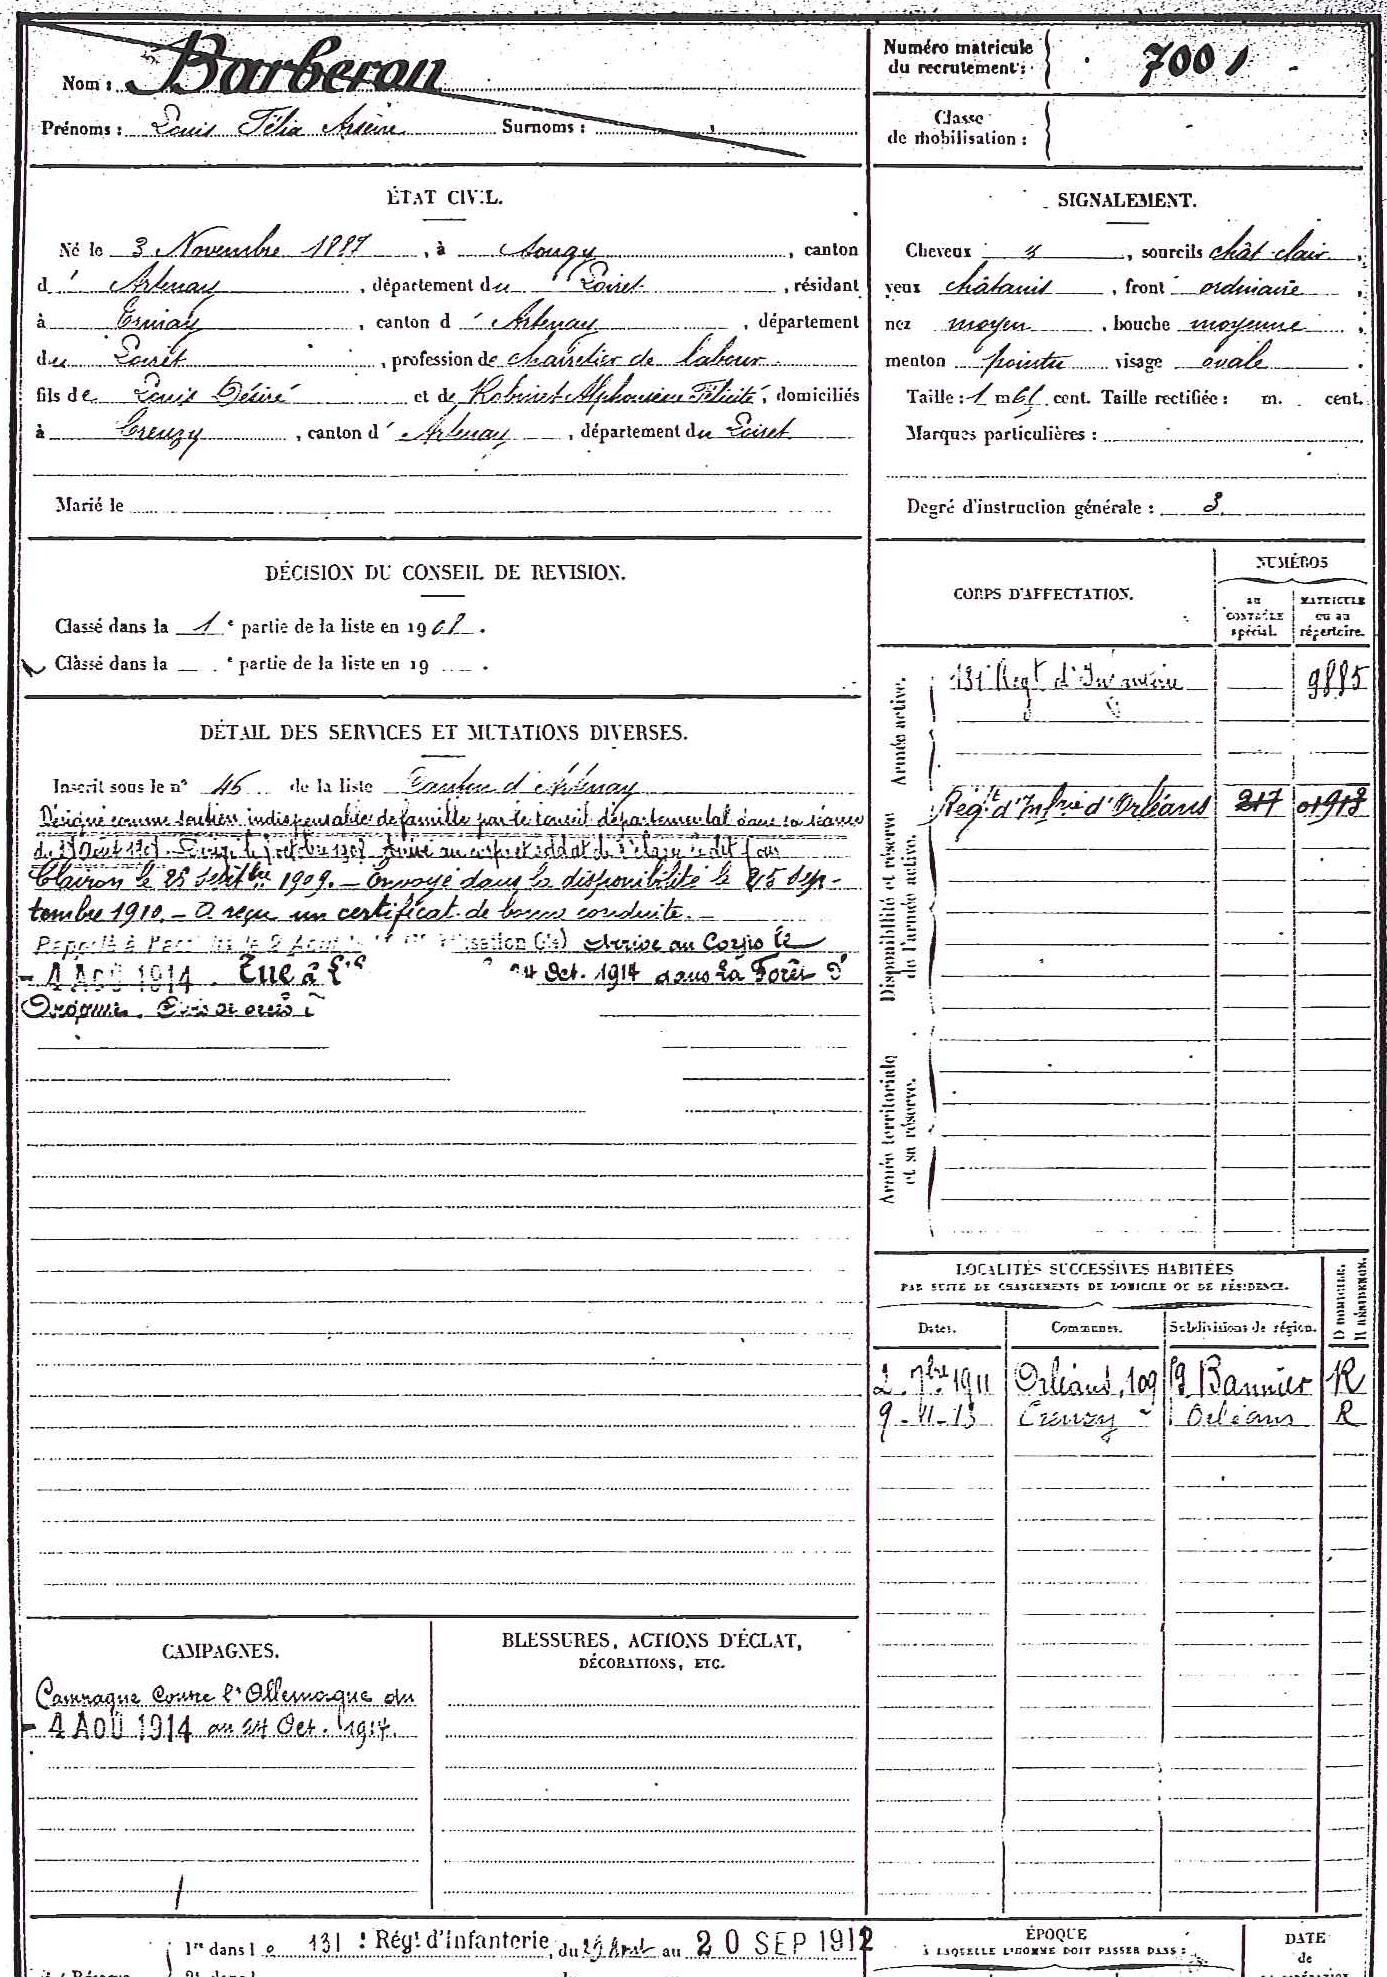 Nom : Barberon
Prénoms : Louis Félix Arsène Surnoms :
Numéro matricule
du recrutement : 7001
Classe
de mobilisation :
ÉTAT CIVIL.
Né le 3 Novembre 1887, à Sougy, canton
d' Artenay, département du Loiret, résidant
à , canton d' Artenay, département
du Loiret, profession de charretier de labour
fils de Louis Désiré et de Robinet Alphonsine Félicité, domiciliés
à Creuzy, canton d' Artenay, département du Loiret
Marié le
SIGNALEMENT.
Cheveux , sourcils chât clair,
yeux châtains, front ordinaire,
nez moyen, bouche moyenne,
menton pointu visage ovale.
Taille : 1 m 61 cent. Taille rectifiée : m. cent.
Marques particulières :
Degré d'instruction générale : 3
DÉCISION DU CONSEIL DE REVISION.
Classé dans la 1e partie de la liste en 1908.
Classé dans la e partie de la liste en 19 .
DÉTAIL DES SERVICES ET MUTATIONS DIVERSES.
Inscrit sous le no 46 de la liste Canton d'Artenay
Désigné comme soutien indispensable de famille par le conseil départemental dans sa séance
du Août Arrivé au corps et soldat de 2e classe le dit jour
Clairon le 25 Septbre 1909. — Envoyé dans la disponibilité le 25 Sep-
tembre 1910. — A reçu un certificat de bonne conduite. —
Rappelé à l'activité le 2 Août Arrivé au Corps le
- 4 AOÛ 1914. Tué à 24 Oct. 1914 dans la Forêt d'
CORPS D'AFFECTATION.
NUMÉROS
AU CONTRÔLE spécial.
MATRICULE ou au répertoire.
Armée active.
131 Regt d'Infanterie 9885
Disponibilité et réserve de l'armée active.
Regt d'Infrie d'Orléans 217 01913
Armée territoriale et sa réserve.
LOCALITÉS SUCCESSIVES HABITÉES
PAR SUITE DE CHANGEMENTS DE DOMICILE OU DE RÉSIDENCE.
Dates. Communes. Subdivisions de région. D domicile. R résidence.
2 7bre 1911 Orléans, 109 fg Bannier R
9-11-13 Creuzy Orléans R
CAMPAGNES.
Campagne contre l'Allemagne du
- 4 AOÛ 1914 au 24 Oct. 1914.
BLESSURES, ACTIONS D'ÉCLAT,
DÉCORATIONS, ETC.
1re dans le 131e Régt d'Infanterie, du 29 Août au 20 SEP 1912
ÉPOQUE
À LAQUELLE L'HOMME DOIT PASSER DANS :
DATE
de